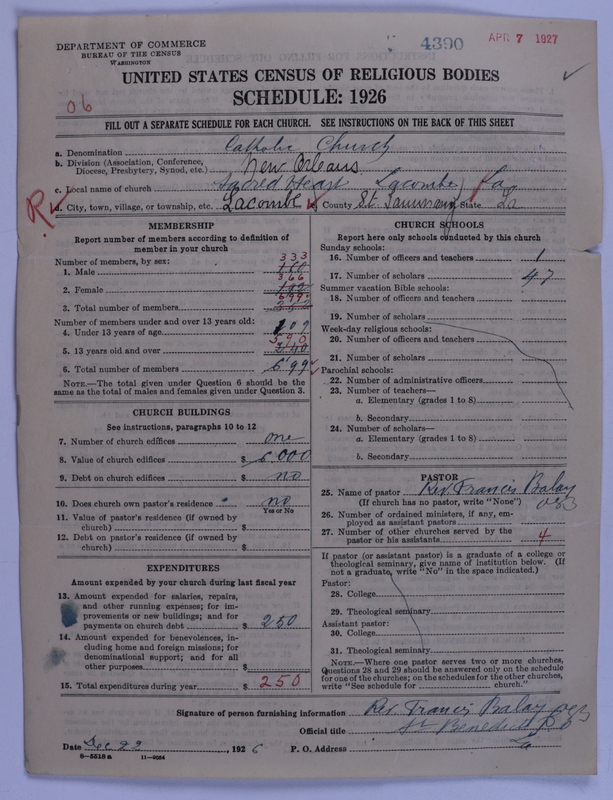 DEPARTMENT OF COMMERCE
BUREAU OF THE CENSUS
WASHINGTON
4390
APR 7 1927
UNITED STATES CENSUS OF RELIGIOUS BODIES
SCHEDULE: 1926
06
FILL OUT A SEPARATE SCHEDULE FOR EACH CHURCH. SEE INSTRUCTIONS ON THE BACK OF THIS SHEET
a. Denomination Catholic Church
b. Division (Association, Conference, Diocese, Presbytery, Synod, etc.) New Orleans
c. Local name of church Sacred Heart Lacombe, La
d. City, town, village, or township, etc. Lacombe e. County St. Tammany State La
R
MEMBERSHIP
Report number of members according to definition of
member in your church
Number of members, by sex:
1. Male 333
2. Female 366
3. Total number of members 699
Number of members under and over 13 years old:
4. Under 13 years of age 109
5. 13 years old and over 590 240
6. Total number of members 699
NOTE.—The total given under Question 6 should be the
same as the total of males and females given under Question 3.
CHURCH BUILDINGS
See instructions, paragraphs 10 to 12
7. Number of church edifices one
8. Value of church edifices $ 6000
9. Debt on church edifices $ no
10. Does church own pastor's residence no
Yes or No
11. Value of pastor's residence (if owned by
church) $
12. Debt on pastor's residence (if owned by
church) $
EXPENDITURES
Amount expended by your church during last fiscal year
13. Amount expended for salaries, repairs,
and other running expenses; for im-
provements or new buildings; and for
payments on church debt $ 250
14. Amount expended for benevolences, in-
cluding home and foreign missions; for
denominational support; and for all
other purposes $
15. Total expenditures during year $ 250
CHURCH SCHOOLS
Report here only schools conducted by this church
Sunday schools:
16. Number of officers and teachers 1
17. Number of scholars 47
Summer vacation Bible schools:
18. Number of officers and teachers
19. Number of scholars
Week-day religious schools:
20. Number of officers and teachers
21. Number of scholars
Parochial schools:
22. Number of administrative officers
23. Number of teachers—
a. Elementary (grades 1 to 8)
b. Secondary
24. Number of scholars—
a. Elementary (grades 1 to 8)
b. Secondary
PASTOR
25. Name of pastor Rev. Francis Balay
(If church has no pastor, write "None") OSB
26. Number of ordained ministers, if any, em-
ployed as assistant pastors
27. Number of other churches served by the
pastor or his assistants 4
If pastor (or assistant pastor) is a graduate of a college or
theological seminary, give name of institution below. (If
not a graduate, write "No" in the space indicated.)
Pastor:
28. College
29. Theological seminary
Assistant pastor:
30. College
31. Theological seminary
NOTE.—Where one pastor serves two or more churches,
Questions 28 and 29 should be answered only on the schedule
for one of the churches; on the schedules for the other churches,
write "See schedule for church."
Signature of person furnishing information Rev. Francis Balay OSB
Official title St Benedict P.O
Date Dec 22, 1926 P. O. Address La
9-5518 a 11-9054